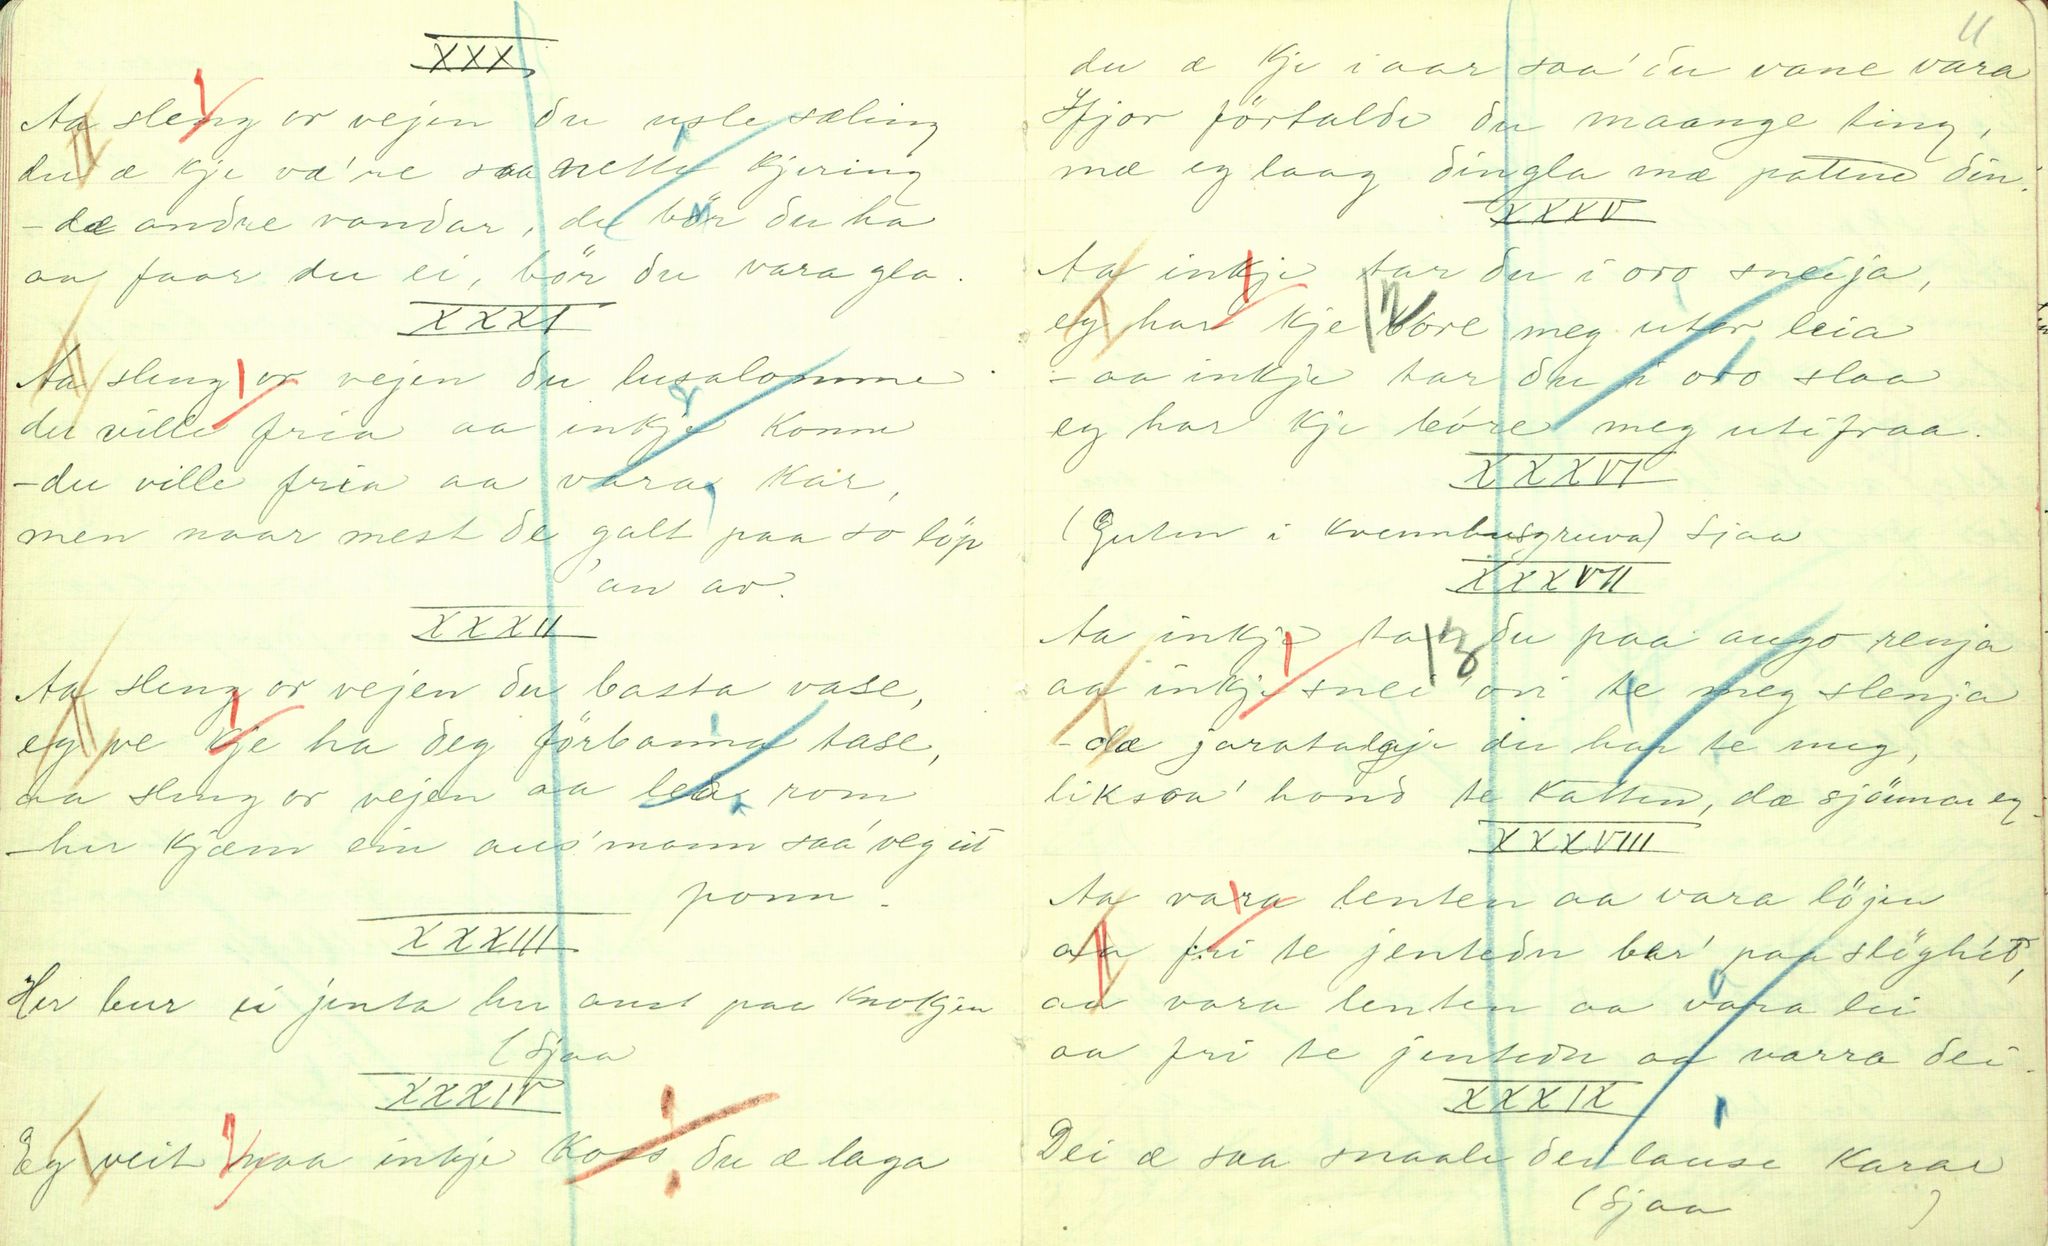 XXX
Aa sleng or vejen du usle sæling
du æ kje væ're saa nette kjering
- dæ andre vandar, du bör du ha
aa faar du ei, bör du vara gla.
XXXI
Aa sleng or vejen du lusalomme
du ville fria aa inkje komme
- du ville fria aa vara kar,
men naar mest de galt paa so löp
'an av.
XXXII
Aa sleng or vejen du basta vase,
eg ve kje ha deg förbanna tase,
aa sleng or vejen aa lea rom
- her kjæm ein aus'mann saa' veg ut
ponn.
XXXIII
Her bur ei jenta hu aust paa Knokjen
(Sjaa
XXXIV
Eg veit maa inkje koss du æ laga
11
du æ kje i aar saa' du vane vara
Ifjor förtalde du maange ting,
mæ eg laag dingla mæ patene din'.
XXXV
Aa inkje tar du i oro sneija,
eg har kje 12 böre meg utor leia
- aa inkje tar du i oro slaa
eg har kje böre meg utifraa.
XXXVI
(Guten i kvennhusgruva) Sjaa
XXXVII
Aa inkje tar 13 du paa augo renja
aa inkje snei ori te meg slenja
- dæ jaratalgje du har te meg,
liksaa' hond te katten, dæ sjönnar eg.
XXXVIII
Aa vara lenten aa vara löjen
aa fri te jentedn bar' paa slöghet,
aa vara lenten aa vara lei
aa fri te jentedn aa narra dei.
XXXIX
Dei æ saa snaale dei lause karar
(Sjaa )